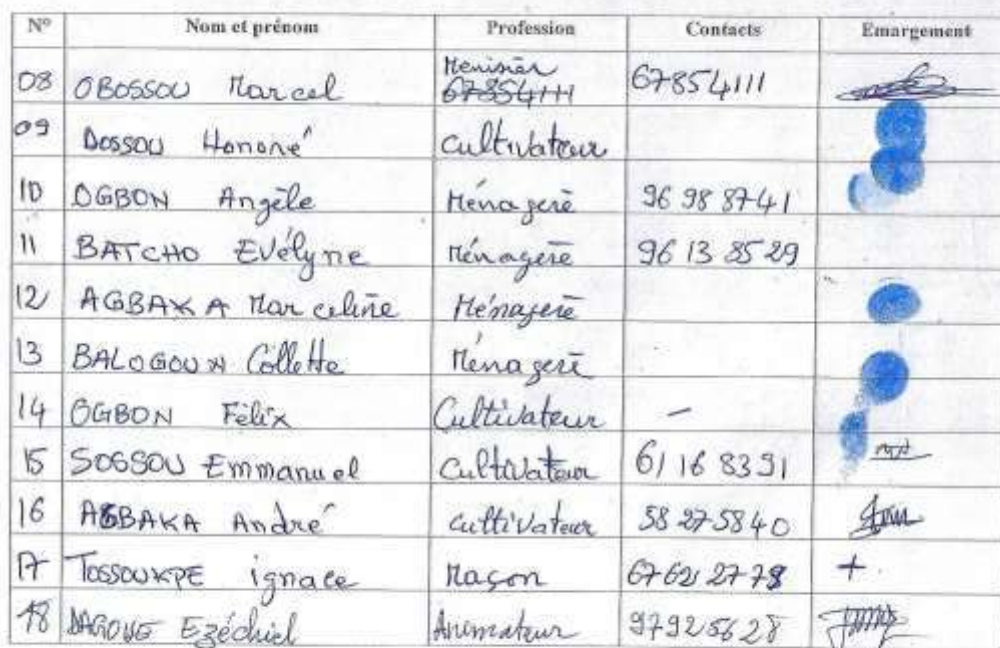 N° Nom et prénom Profession Contacts Emargement
08 OBOSSOU Marcel Menisier 67854111 67854111
09 DOSSOU Honoré Cultivateur
10 OGBON Angèle Ménagerè 96 98 87 41
11 BATCHO Evélyne Ménagerè 96 13 85 29
12 AGBAKA Marceline Ménagerè
13 BALOGOUN Collette Ménagerè
14 OGBON Félix Cultivateur –
15 SOSSOU Emmanuel Cultivateur 61 16 83 91
16 AGBAKA André cultivateur 58 27 58 40
17 TOSSOUKPE ignace Maçon 67 62 27 78 +
18 Ezéchiel Animateur 97 92 56 28